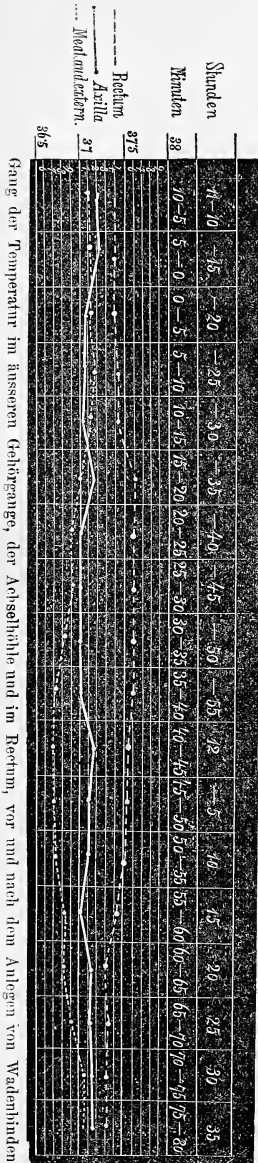 Stunden 11—10 —15 —20 —25 —30 —35 —40 —45 —50 —55 12 —5 10 15 20 25 30 35
Minuten 10—5 5—0 0—5 5—10 10—15 15—20 20—25 25—30 30—35 35—40 40—45 45—50 50—55 55—60 60—65 65—70 70—75 75—80
38
37.5
37
36.5
Rectum
Axilla
Meat. aud. extern.
Gang der Temperatur im äusseren Gehörgange, der Achselhöhle und im Rectum, vor und nach dem Anlegen von Wadenbinden